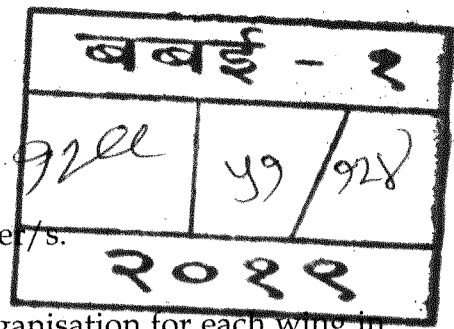 बबई - १
५१ / १२४
er/s.
२०१९
ganisation for each wing in